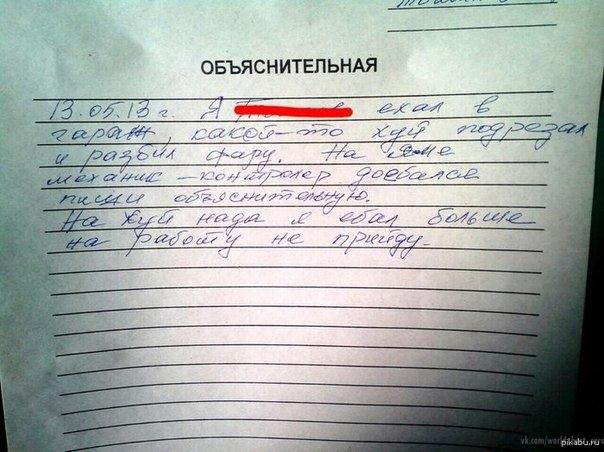 ОБЪЯСНИТЕЛЬНАЯ
13.05.13 г. Я ехал в
гараж, какой-то хуй подрезал
и разбил фару. На яме
механик-контролер доебался
пиши объяснительную.
На хуй нада я ебал больше
на работу не прийду.
vk.com/
pikabu.ru